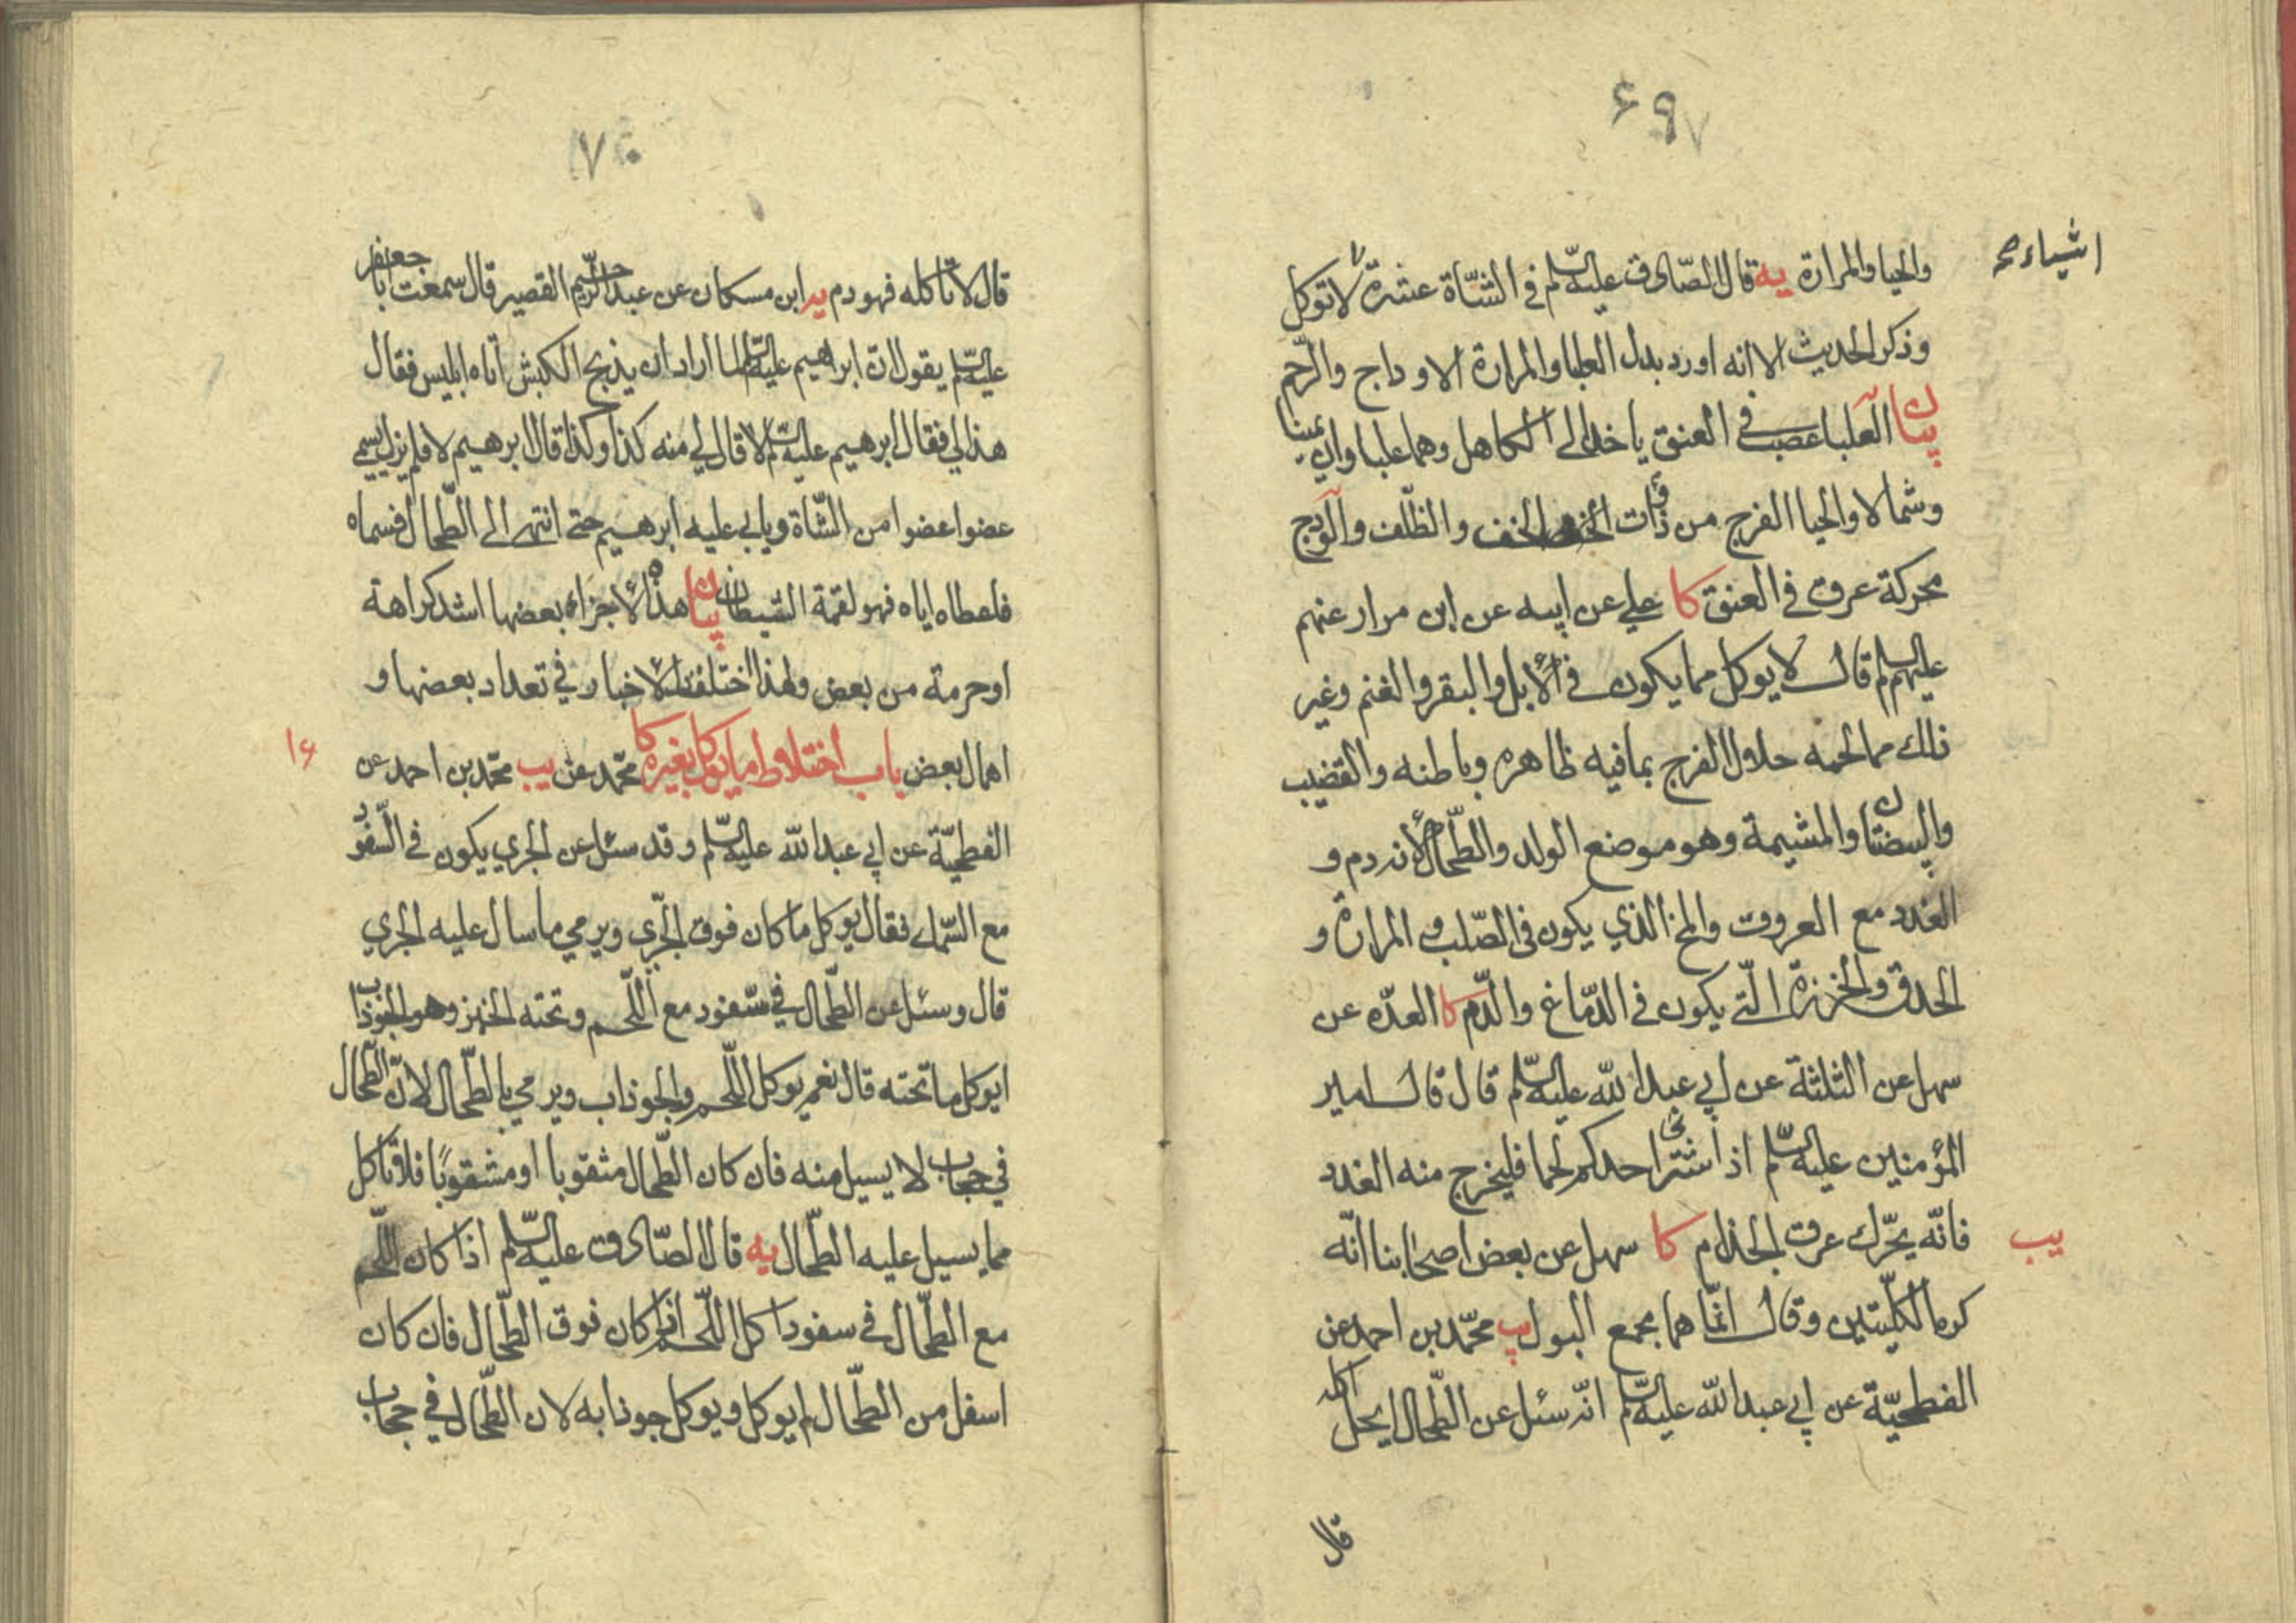 ۶۹۷
والحيا والمرارة يه قال الصّادق عليه السّلم في الشّاة عشرة لا توكل
اشياء صح
وذكر الحديث الا انه اورد بدل العلبا والمرارة الاوداج والرّحم
بيان العلبا عصب في العنق ياخذ الى الكاهل وهما علباوان يمينا
وشمالا والحيا الفرج من ذوات الخف والظّلف والودج
محركة عرق في العنق كا علي عن ابيه عن ابن مرار عنهم
عليهم السلم قال لا يوكل مما يكون في الأبل والبقر والغنم وغير
ذلك مما لحمه حلال الفرج بما فيه ظاهره وباطنه والقضيب
والبيضتان والمشيمة وهو موضع الولد والطّحال لأنه دم و
الغدد مع العروق والمخ الذي يكون في الصّلب والمرارة و
الحدق والخرزة الّتي يكون في الدّماغ والدّم كا العدّه عن
سهل عن الثلثة عن ابي عبد الله عليه السّلم قال قال امير
المؤمنين عليه السّلم اذا اشترى احدكم لحما فليخرج منه الغدد
فانّه يحرّك عرق الجذام كا سهل عن بعض اصحابنا انّه
يب
كره الكليتين وقال انّما هما مجمع البول يب محمّد بن احمد عن
الفطحيّة عن ابي عبد الله عليه السّلم انّه سئل عن الطّحال ايحل اكله
قال
۷۰
قال لا تاكله فهو دم ير ابن مسكان عن عبد الرّحيم القصير قال سمعت ابا جعفر
عليه السّلم يقول ان ابراهيم عليه السّلم لما اراد ان يذبح الكبش اتاه ابليس فقال
هذا لي فقال ابرهيم عليه السّلم لا قال لي منه كذا وكذا قال ابرهيم لا فلم يزل يسمي
عضوا عضوا من الشّاة ويابى عليه ابرهيم حتى انتهى الى الطّحال فسماه
فاعطاه اياه فهو لقمة الشيطان بيان هذه الأجزاء بعضها اشد كراهة
او حرمة من بعض ولهذا اختلفت الأخبار في تعداد بعضها و
اهمال بعض باب اختلاط ما يوكل بغيره كا محمّد عن يب محمّد بن احمد عن
۱۶
الفطحيّة عن ابي عبد الله عليه السّلم وقد سئل عن الجري يكون في السّفود
مع السّمك فقال يوكل ما كان فوق الجرّي ويرمي ما سال عليه الجري
قال وسئل عن الطّحال في سّفود مع اللّحم وتحته الخبز وهو الجوذاب
ايوكل ما تحته قال نعم يوكل اللّحم والجوذاب ويرمي بالطّحال لانّ الطّحال
في حجاب لا يسيل منه فان كان الطّحال مثقوبا او مشقوبًا فلا تاكل
مما يسيل عليه الطّحال يه قال الصّادق عليه السّلم اذا كان اللّحم
مع الطّحال في سفود اكل اللّحم اذا كان فوق الطّحال فان كان
اسفل من الطّحال لم يوكل ويوكل جوذابه لان الطّحال في حجاب